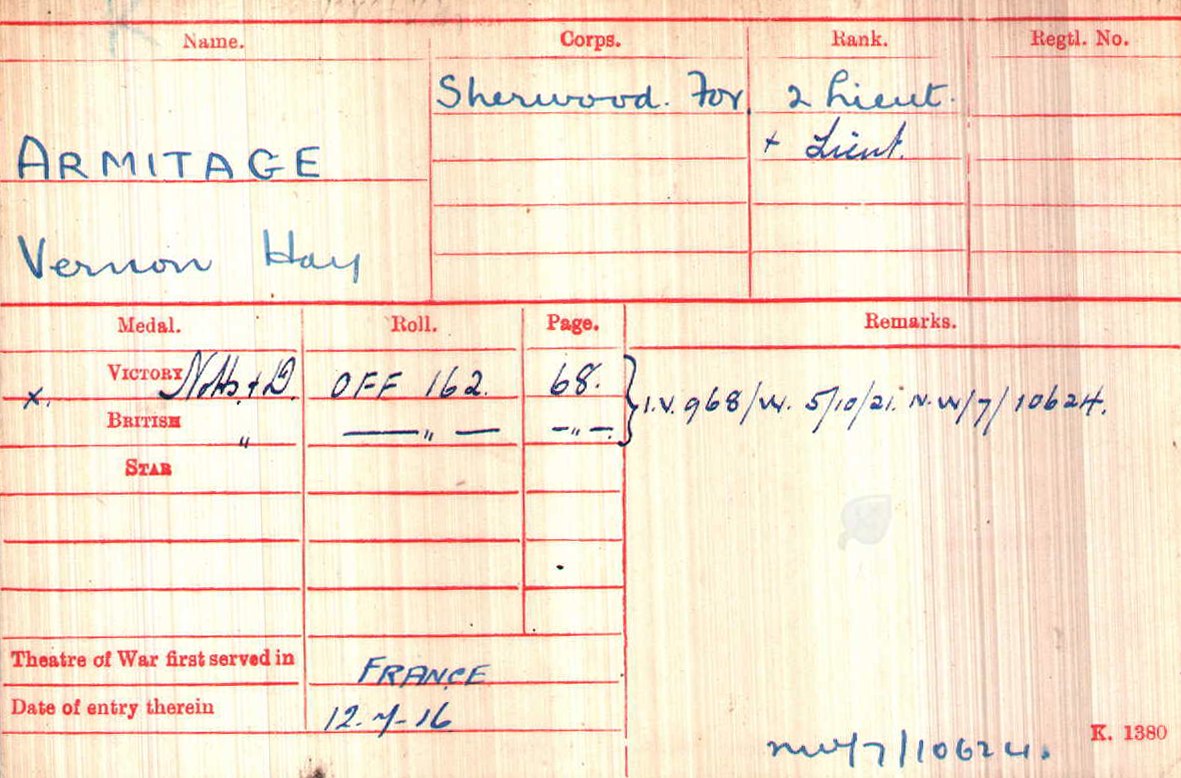 Name. Corps. Rank. Regtl. No.
Sherwood. For. 2 Lieut.
+ Lieut.
ARMITAGE
Vernon Hay
Medal. Roll. Page. Remarks.
VICTORY Notts. & D. OFF 162. 68.
x.
I.V. 968/W. 5/10/21. N.W/7/10624.
BRITISH " — " — — " —.
STAR
Theatre of War first served in FRANCE
Date of entry therein 12-7-16
K. 1380
NW/7/10624.